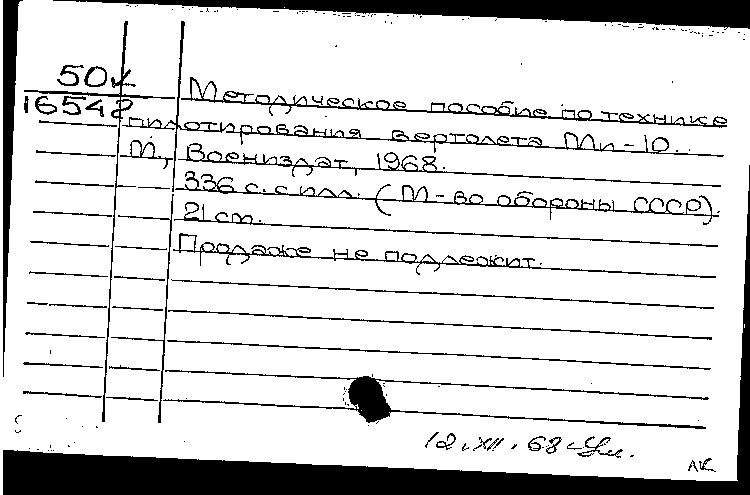 50к
16542
Методическое пособие по технике
пилотирования вертолета Ми-10.
М, Воениздат, 1968.
336 с. с илл. (М-во обороны СССР).
21 см.
Продаже не подлежит.
12.XII.68
АК